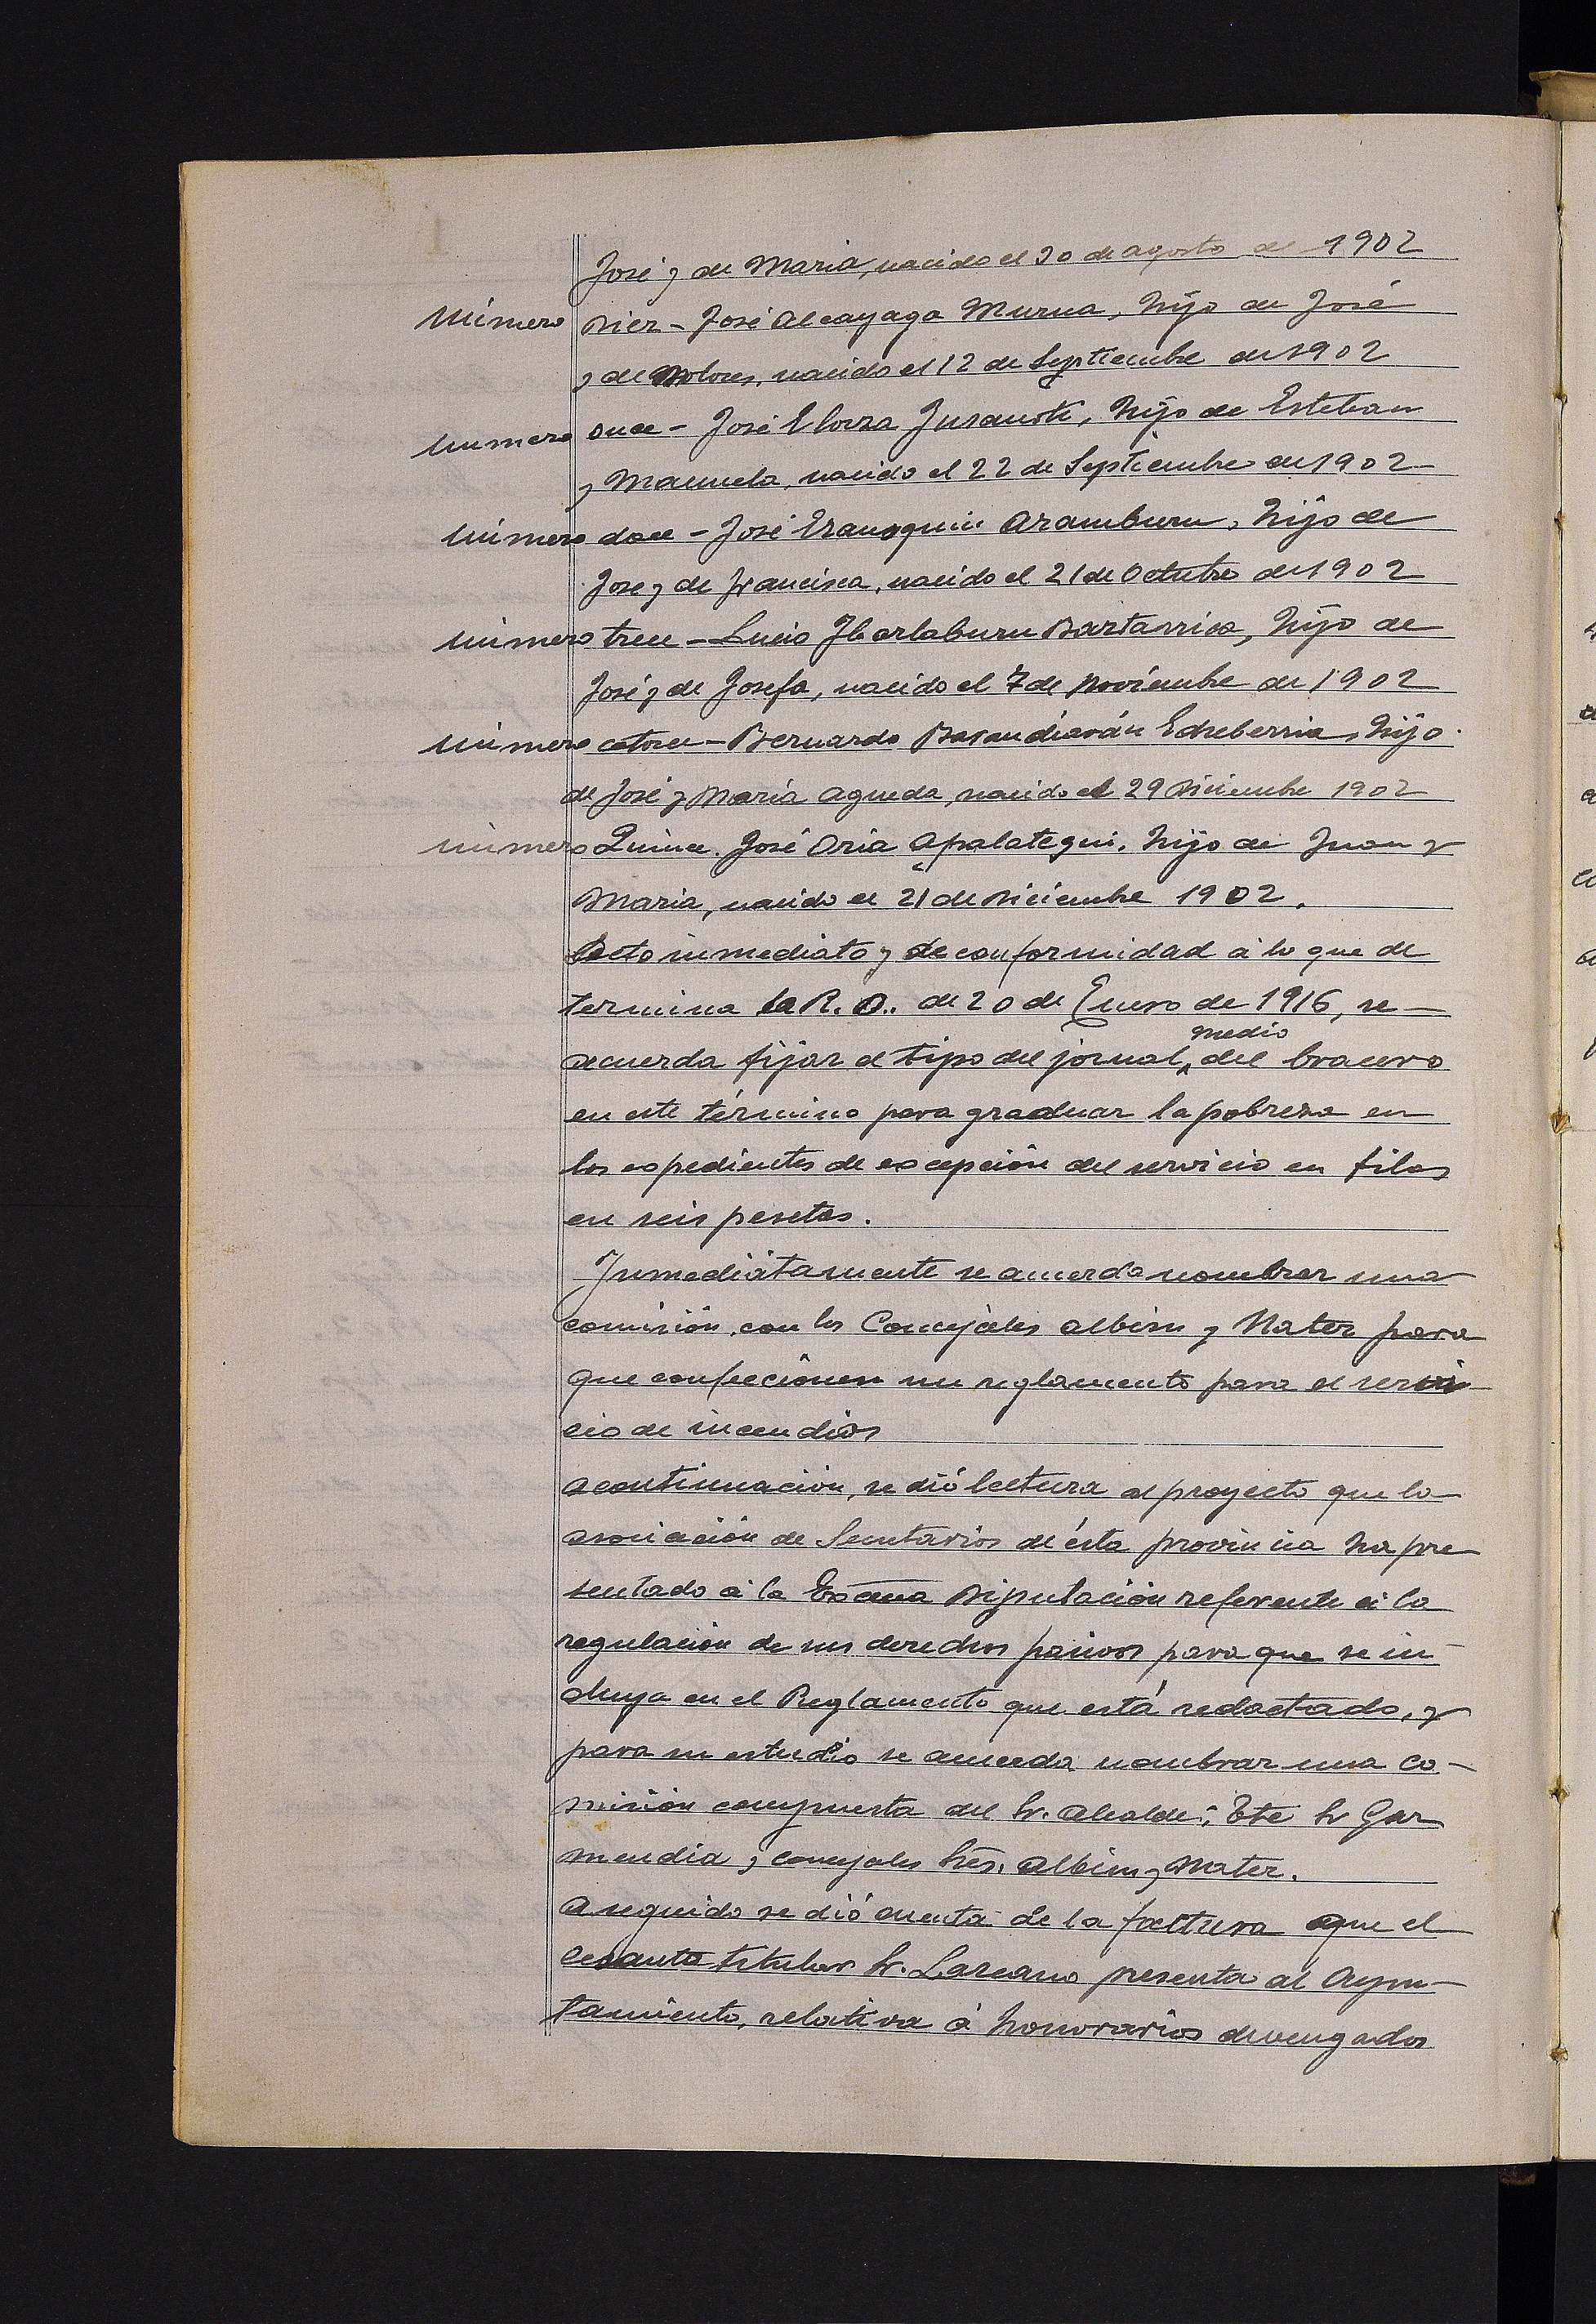 José y de Maria, nacido el 30 de agosto de 1902
Número Diez - José Alcayaga Murua, hijo de José
y de Dolores, nacido el 12 de Septiembre de 1902
número once - José Elorza Insausti, hijo de Esteban
y Manuela, nacido el 22 de Septiembre de 1902
número doce - José Aramburu, hijo de
Jose y de Francisca, nacido el 21 de Octubre de 1902
número trece - Lucio Ibarlaburu hijo de
José y de Josefa, nacido el 7 de Noviembre de 1902
número catorce - Bernardo Barandiarán Echeberria, hijo
de José y María Agueda, nacido el 29 Diciembre 1902
número Quince. José Oria Apalategui, hijo de Juan y
Maria, nacido el 21 de Diciembre 1902.
Acto inmediato y de conformidad á lo que de
termina la R. O.. de 20 de Enero de 1916, se
acuerda fijar el tipo del jornal medio del bracero
en este término para graduar la pobreza en
los expedientes de excepción del servicio en filas
en seis pesetas.
Inmediátamente se acuerda nombrar una
comisión, con los Concejales Albisu y Mater para
que confeccionen un reglamento para el servi-
cio de incendios
A continuación, se dió lectura al proyecto que la
asociación de Secretarios de ésta provincia ha pre
sentado á la Excma Diputación referente á la
regulación de sus derechos pasivos para que se in-
cluya en el Reglamento que está redactado, y
para su estudio se acuerda nombrar una co-
misión compuesta del Sr. Alcalde; Tte Sr Gar
mendia y concejales Srēs. Albisu y Mater.
A seguido se dió cuenta de la factura que el
cesante titular Sr. Lazcano presenta al Ayun-
tamiento, relativa á honorarios devengados